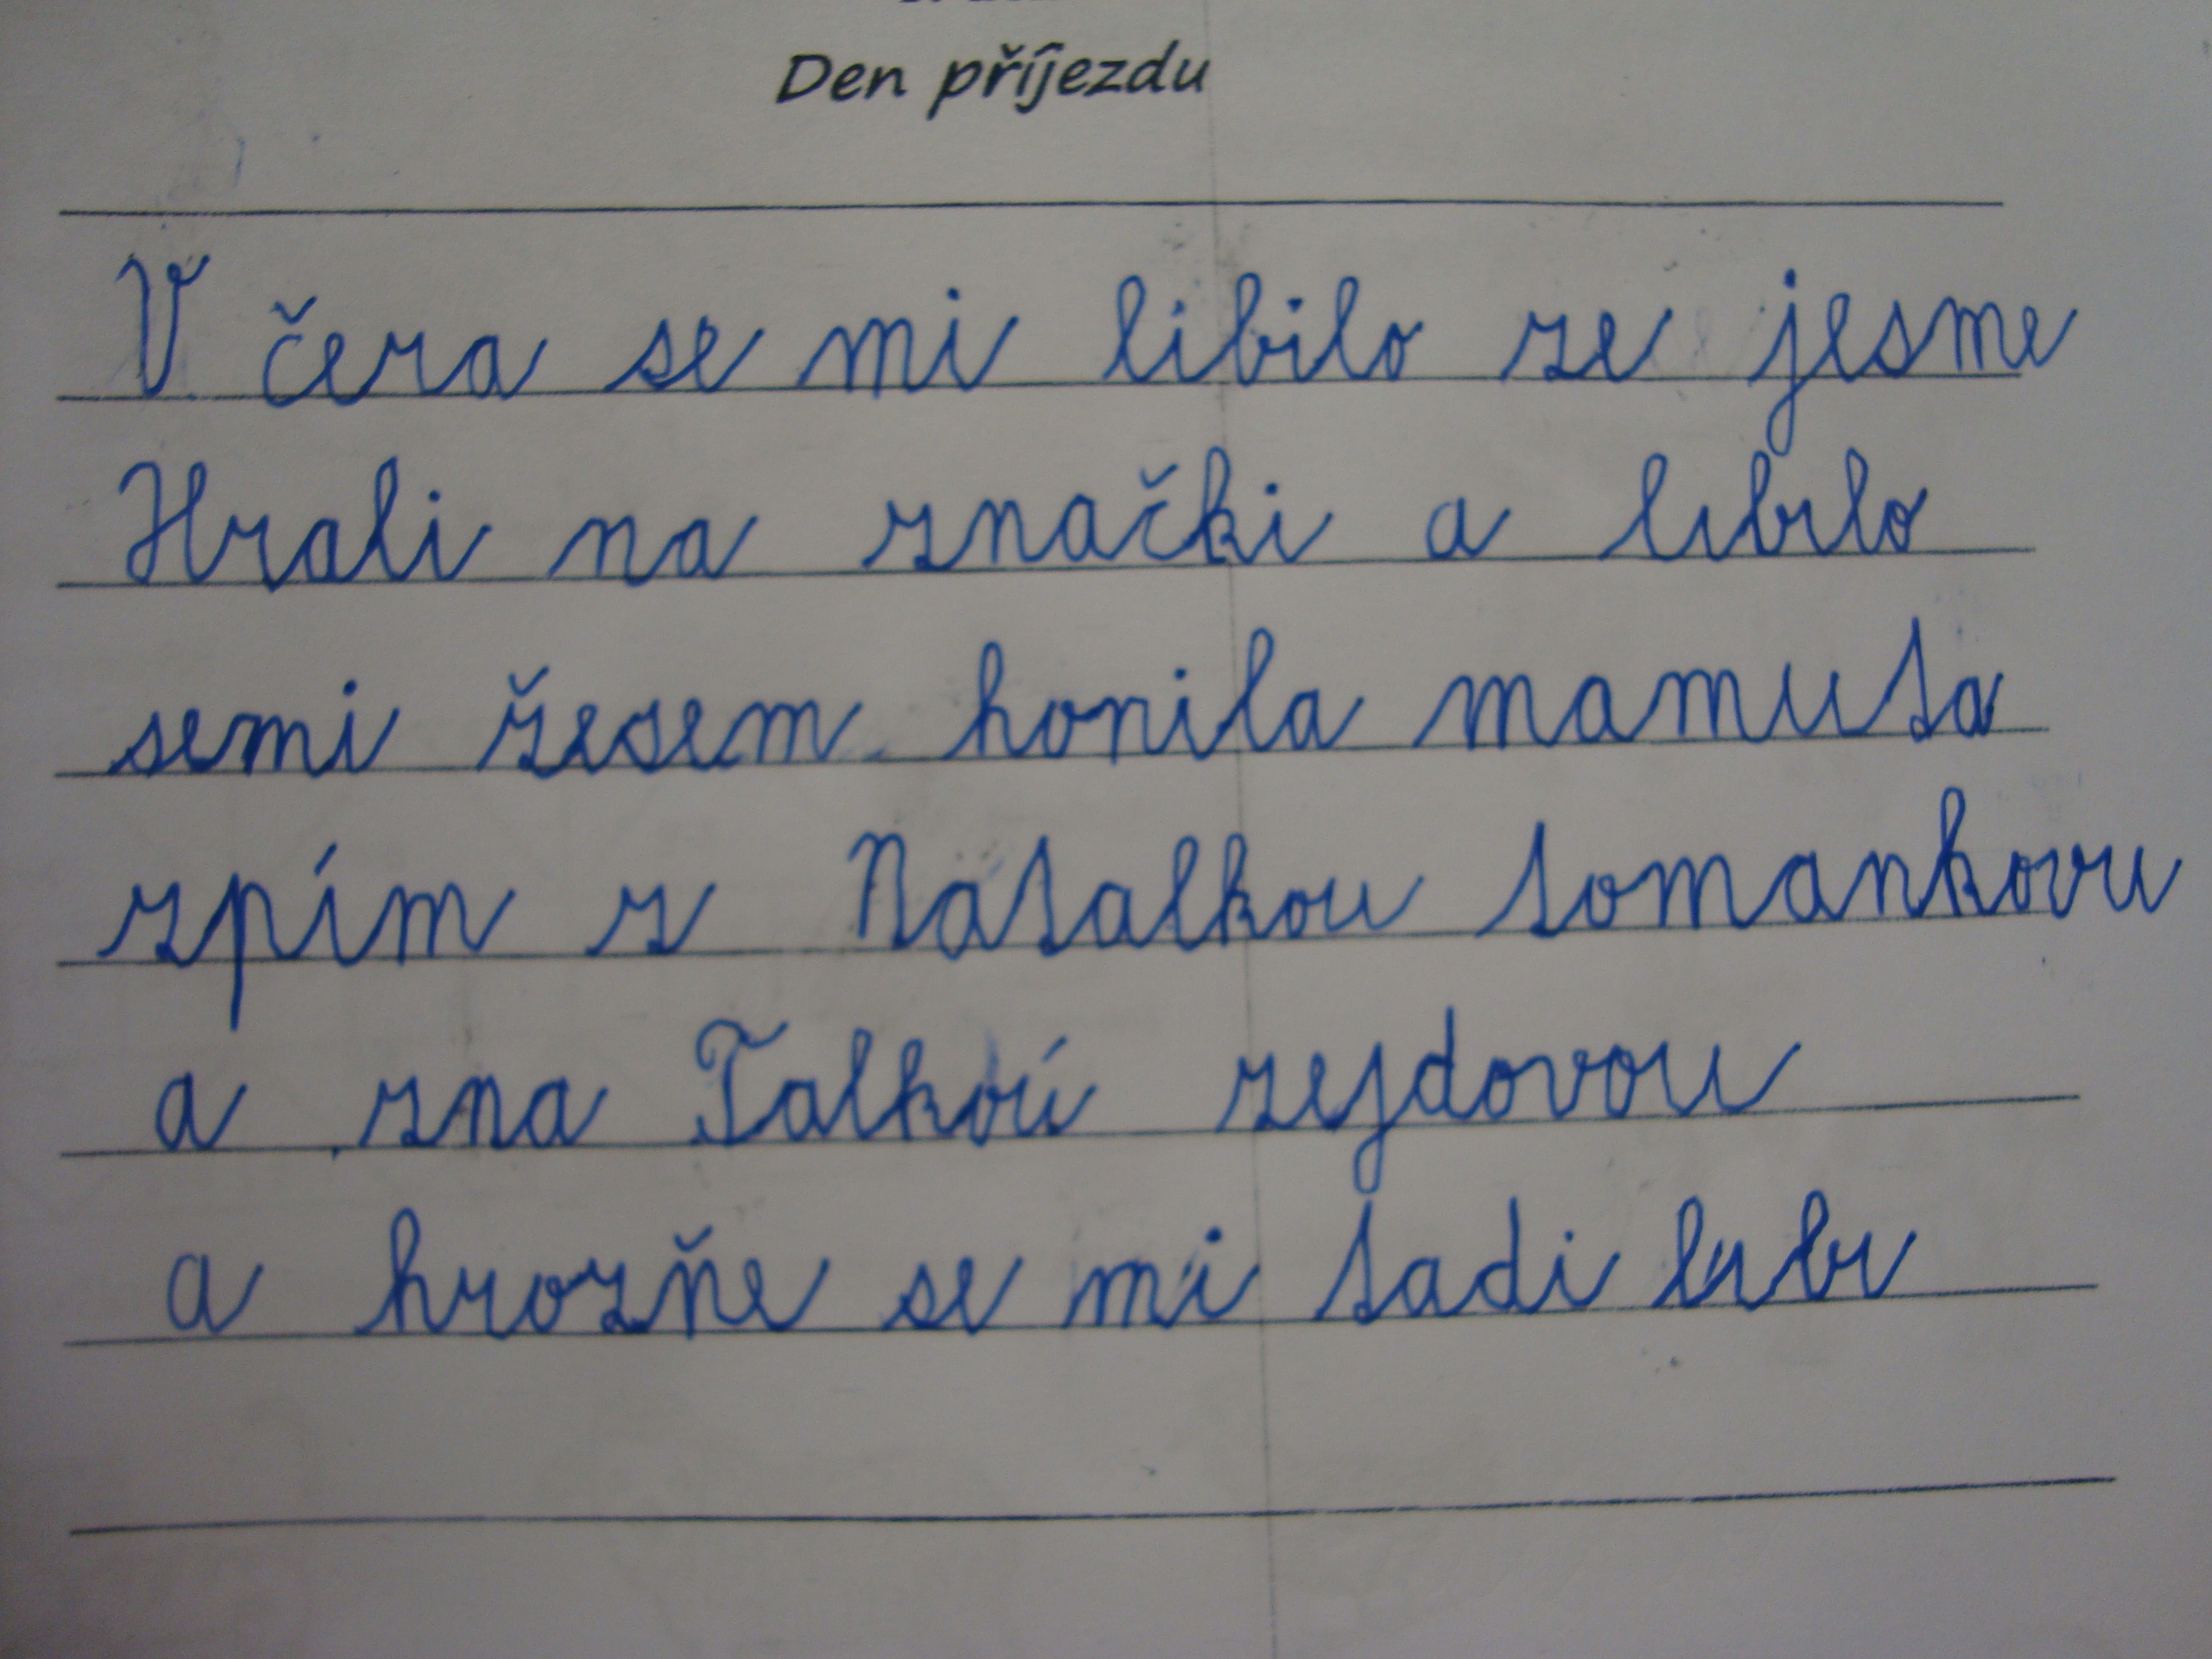 Den příjezdu
V čera se mi libilo ze jesme
Hrali na znački a libilo
semi žesem honila mamuta
zpím z Natalkou tomankovu
a zna Talkoú zejdovou
a hrozňe se mi tadi libi